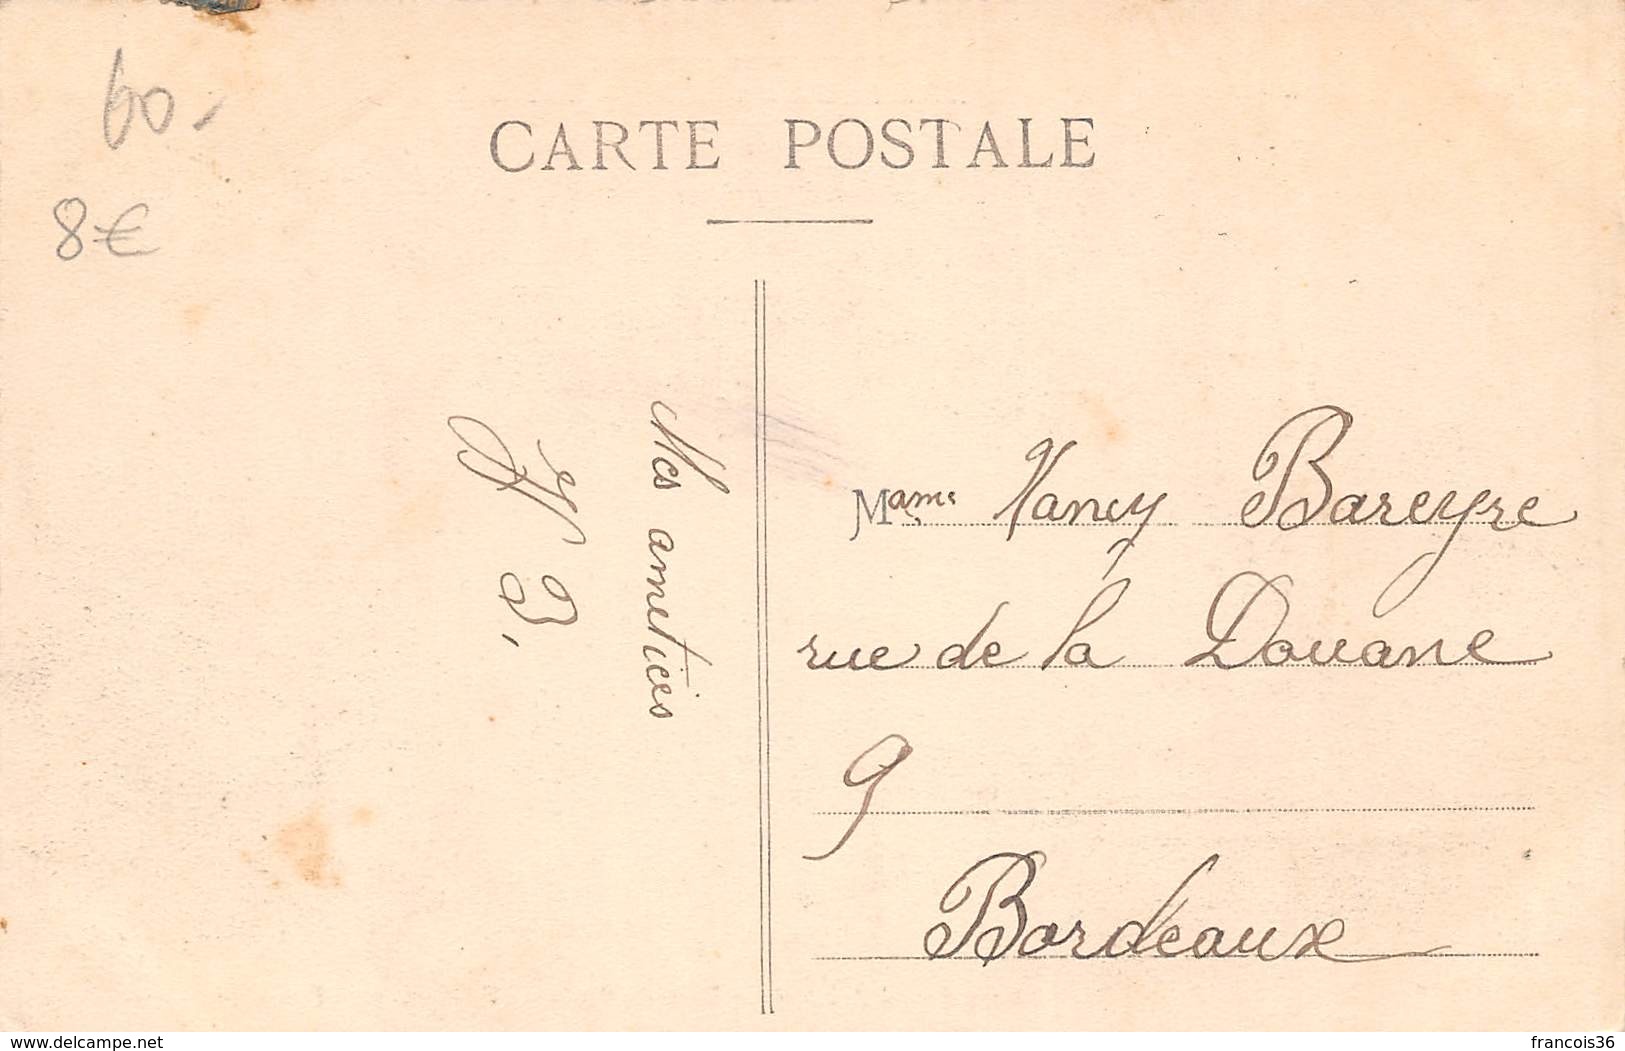 60.-
8€
CARTE POSTALE
Mes ametiés
Mame Nancy Bareyre
rue de la Douane
9
Bordeaux
www.delcampe.net
francois36